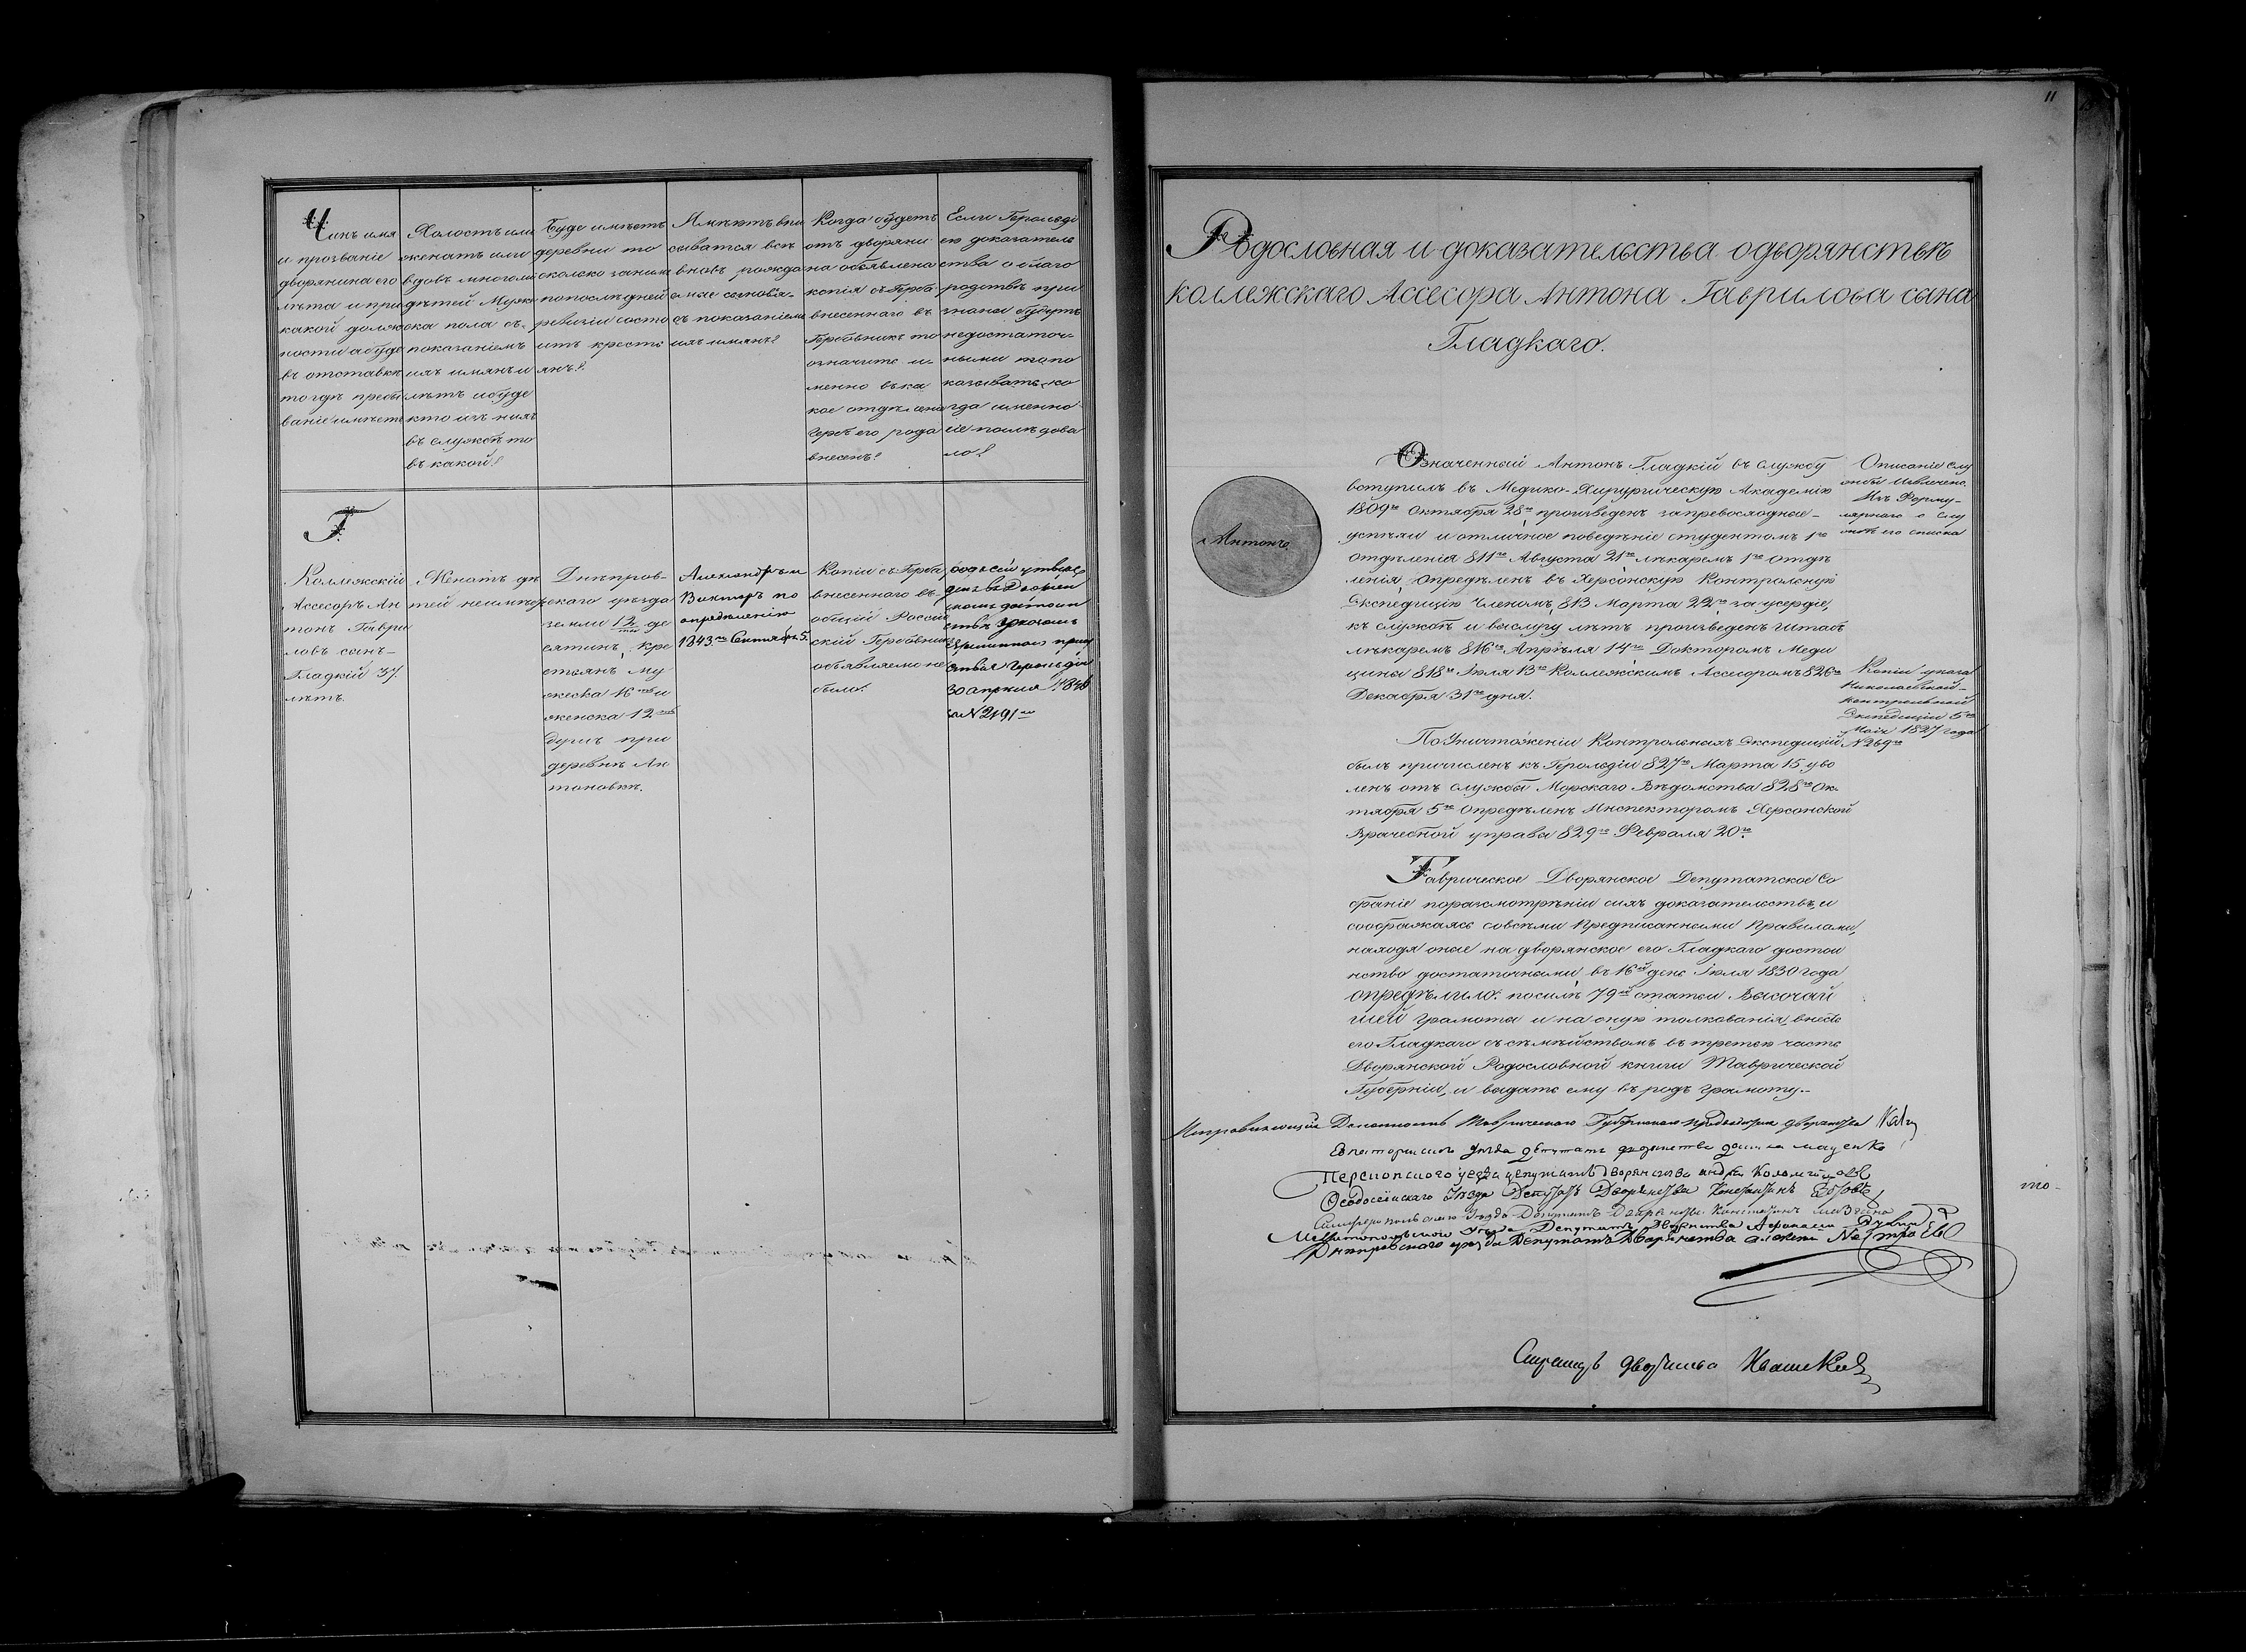 Чинъ имя
и прозваніе
дворянина его
лѣта и при
какой долж
ности абуде
въ отставкѣ
то гдѣ пребы
ваніе имѣетъ
Холостъ или
женатъ или
вдовъ многоли
дѣтей Муже
ска пола съ
показаніемъ
ихъ имянъ и
лѣтъ и буде
кто изъ нихъ
въ службѣ то
въ какой?
Буде имѣетъ
деревни то
сколько заними
попослѣдней
ревизіи состо
итъ кресть
янъ?
Имѣютъ впи
сыватся всѣ
вновь рожда
емые сыновья
съ показаніемъ
ихъ имянъ?
Когда будетъ
отъ дворяни
на объявлена
копія съ Герба
внесеннаго въ
Гербовникъ то
означить и
менно въ ка
кое отдѣленіе
Гербъ его рода
внесенъ?
Если Герольді
ею доказатель
ства о благо
родствѣ при
знаны будутъ
недостаточ
ными то по
казывать ко
гда именно
сіе послѣдова
ло?
Г.
Коллежскій
Ассесоръ Ан
тонъ Гаври
ловъ сынъ
Гладкій 37.
лѣтъ.
Женатъ дѣ
тей неимѣетъ
Днѣпров-
скаго уѣзда
земли 12 де
сятинъ, кре
стьянъ му
жеска 16 и
женска 12
душъ при
деревнѣ Ан
тоновкѣ.
Александръ и
Викторъ по
опредѣленію
1843го Сентября 5.
Копіи съ Герба
внесеннаго въ
общій Россій
скій Гербовникъ
объявляемо не
было.
родъ сей утверж
денъ въ Дворян
скомъ достоин
ствѣ указомъ
Временнаго прису
ствія Герольдіи
30 апрѣля 1846
за № 2191
11
Родословная и доказательства о дворянствѣ
коллежскаго Ассесора Антона Гаврилова сына
Гладкаго.
Антонъ
Означенный Антонъ Гладкій въ службу
вступилъ въ Медико-Хирургическую Академію
1809го Октября 28го произведенъ запревосходные
успѣхи и отличное поведеніе студентомъ 1го
отдѣленія 811го Августа 21го лѣкаремъ 1го отдѣ
ленія, опредѣленъ въ Херсонскую Контрольную
Экспедицію Членомъ, 813 Марта 22го за усердіе,
къ службѣ и выслугу лѣтъ произведенъ штабъ
лѣкаремъ 816го Апрѣля 14го Докторомъ Меди
цины 818го Іюля 13го Коллежскимъ Ассесоромъ 826го
Декабря 31го дня.
По Уничтоженіи Контрольныхъ Экспедицій
былъ причисленъ къ Герольдіи 827го Марта 15 уво
ленъ отъ службы Морскаго Вѣдомства 828го Ок
тября 5го Опредѣленъ Инспекторомъ Херсонской
Врачебной управы 829го Февраля 20го.
Таврическое Дворянское Депутатское Со
браніе поразсмотрѣніи сихъ доказательствъ, и
соображаясь совсѣми Предписанными Правилами,
находя оные на дворянское его Гладкаго достои
нство достаточными въ 16й день Іюля 1830 года
опредѣлило: посилѣ 79й статьи Высочай
шей грамоты и на оную толкованія, внесть
его Гладкаго съ сѣмѣйствомъ въ третью часть
Дворянской Родословной книги Таврической
Губерніи, и выдать ему въ родъ грамоту.
Описаніе слу
жбы извлечено
Изъ Форму-
лярнаго о слу
жбѣ его списка
Копіи указа
Николаевской
контрольной
Экспедиціи 5го
Маія 1827 года
№ 269го
Исправляющій Должность Таврическаго Губернскаго предводителя дворянства
Евпаторійскаго уѣзда депутатъ дворянства
Перекопскаго уезда депутатъ дворянства
Феодосійскаго Уѣзда Депутатъ Дворянства Константинъ
Симферопольскаго Уѣзда Депутатъ Дворянства Константинъ
Мелитопольскаго Уѣзда Депутатъ Дворянства
Днѣпровскаго уѣзда Депутатъ Дворянства
Секретарь дворянства